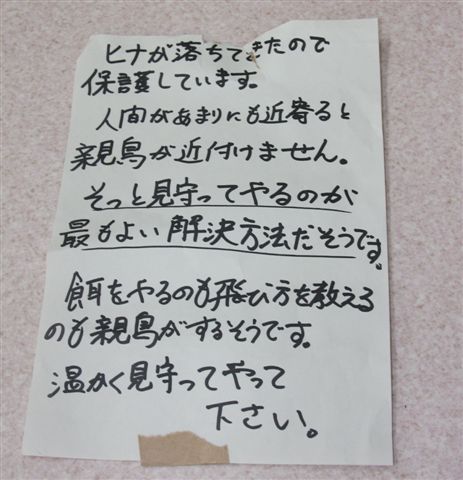 ヒナが落ちてきたので
保護しています。
人間があまりにも近寄ると
親鳥が近付けません。
そっと見守ってやるのが
最もよい解決方法だそうです。
餌をやるのも飛び方を教える
のも親鳥がするそうです。
温かく見守ってやって
下さい。